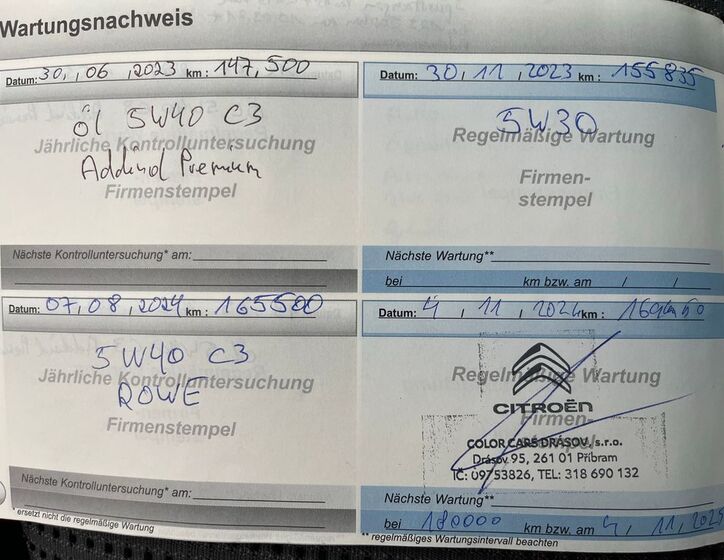 Wartungsnachweis
Datum: 30, 06, 2023 km: 147,500
Öl 5W40 C3
Jährliche Kontrolluntersuchung
Addinol Premium
Firmenstempel
Nächste Kontrolluntersuchung* am:
Datum: 30, 11, 2023 km: 155835
5W30
Regelmäßige Wartung
Firmen-
stempel
Nächste Wartung**
bei km bzw. am / /
Datum: 07, 08, 2024 km: 165500
5W40 C3
Jährliche Kontrolluntersuchung
ROWE
Firmenstempel
Nächste Kontrolluntersuchung* am:
*ersetzt nicht die regelmäßige Wartung
Datum: 4, 11, 2024 km:
Regelmäßige Wartung
CITROËN
COLOR CARS DRÁSOV, s.r.o.
Drásov 95, 261 01 Příbram
IČ: 09753826, TEL: 318 690 132
Nächste Wartung**
bei 180000 km bzw. am 4, 11, 2025
**regelmäßiges Wartungsintervall beachten